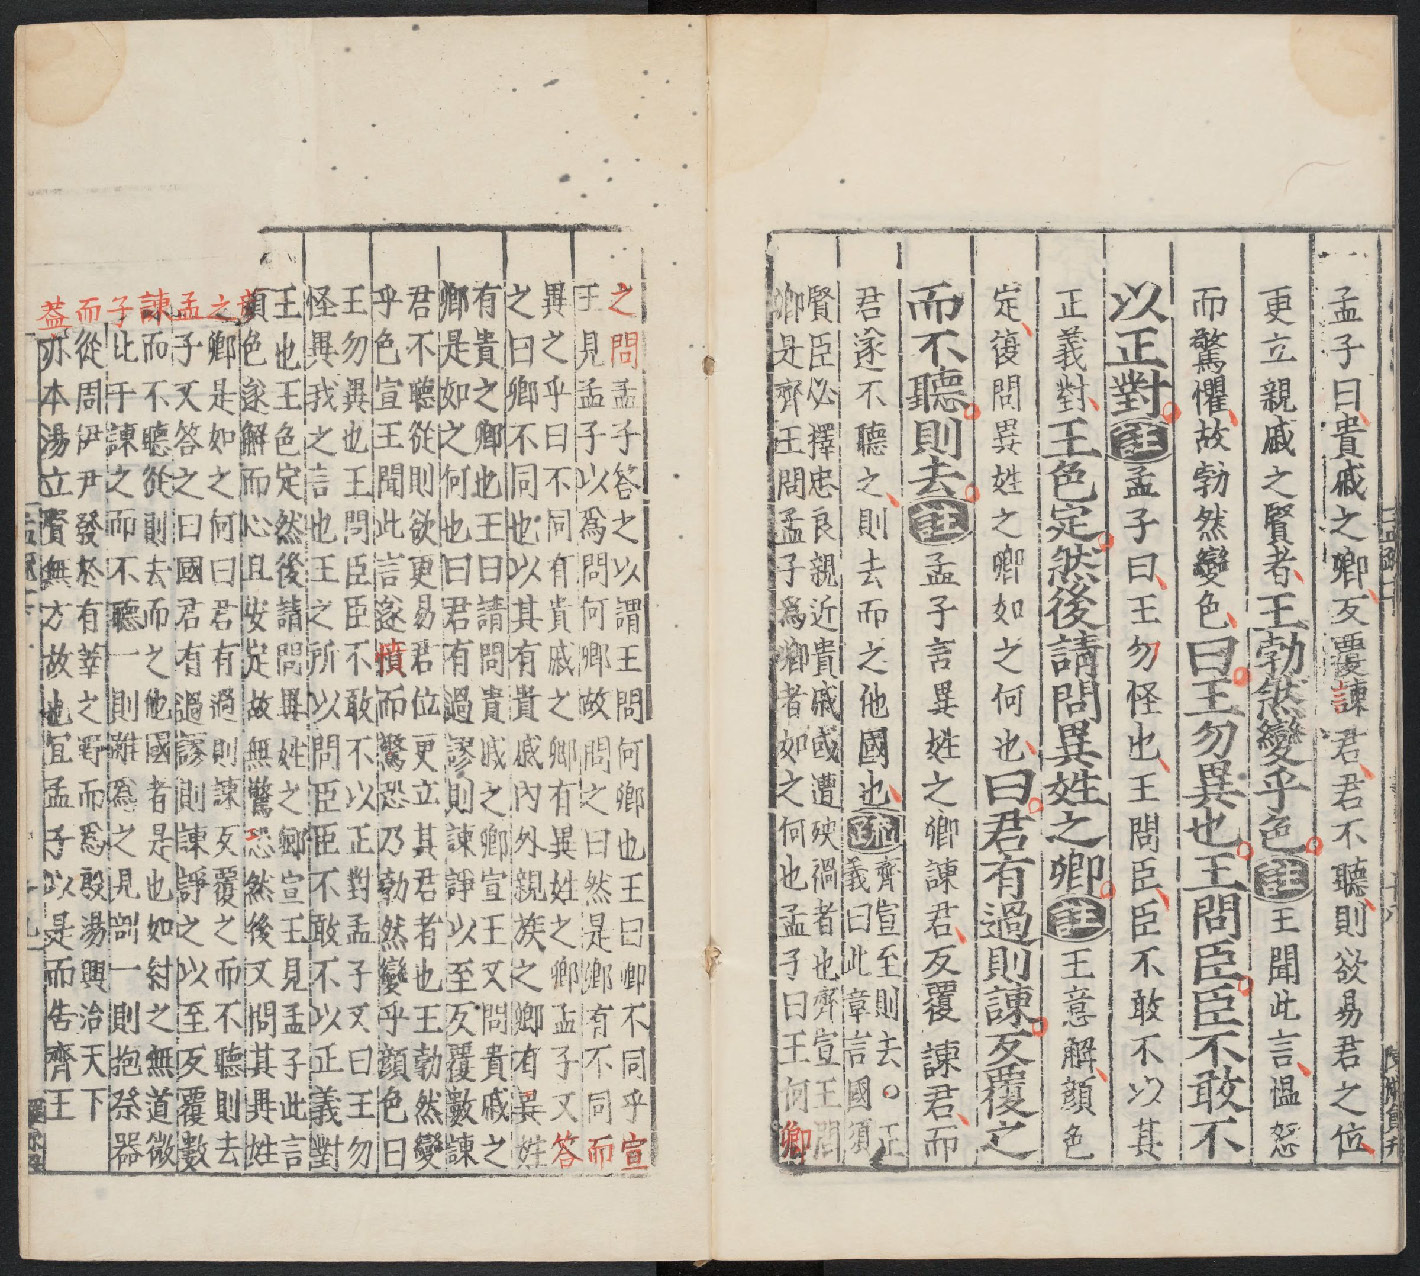 孟子曰貴戚之卿反覆諫君君不聽則欲易君之位
更立親戚之賢者王勃然變乎色註王聞此言愠怒
而驚懼故勃然變色曰王勿異也王問臣臣不敢不
以正對註孟子曰王勿怪也王問臣臣不敢不以其
正義對王色定然後請問異姓之卿註王意解顏色
定復問異姓之卿如之何也曰君有過則諫反覆之
而不聽則去註孟子言異姓之卿諫君反覆諫君而
君遂不聽之則去而之他國也疏齊宣至則去○正
義曰此章言國須
賢臣必擇忠良親近貴戚或遭殃禍者也齊宣王問
卿是齊王問孟子爲卿者如之何也孟子曰王何卿
之問孟子答之以謂王問何卿也王曰卿不同乎宣
王見孟子以爲問何卿故問之曰然是卿有不同而
異之乎曰不同有貴戚之卿有異姓之卿孟子又答
之曰卿不同也以其有貴戚內外親族之卿有異姓
有貴之卿也王曰請問貴戚之卿宣王又問貴戚之
卿是如之何也曰君有過謬則諫諍以至反覆數諫
君不聽從則欲更易君位更立其君者也王勃然變
乎色宣王聞此言遂憤而驚恐乃勃然變乎顏色曰
王勿異也王問臣臣不敢不以正對孟子又曰王勿
怪異我之言也王之所以問臣臣不敢不以正義對
王也王色定然後請問異姓之卿宣王見孟子此言
顏色遂解而心且安定故無驚恐然後又問其異姓
之卿是如之何曰君有過則諫反覆之而不聽則去
孟子又答之曰國君有過謬則諫諍之以至反覆數
諫而不聽從則去而之他國者是也如紂之無道微
子比干諫之而不聽一則雖爲之見剖一則抱祭器
而從周伊尹發於有莘之野而爲殷湯興治天下
蓋亦本湯立賢無方故也宜孟子以是而告齊王